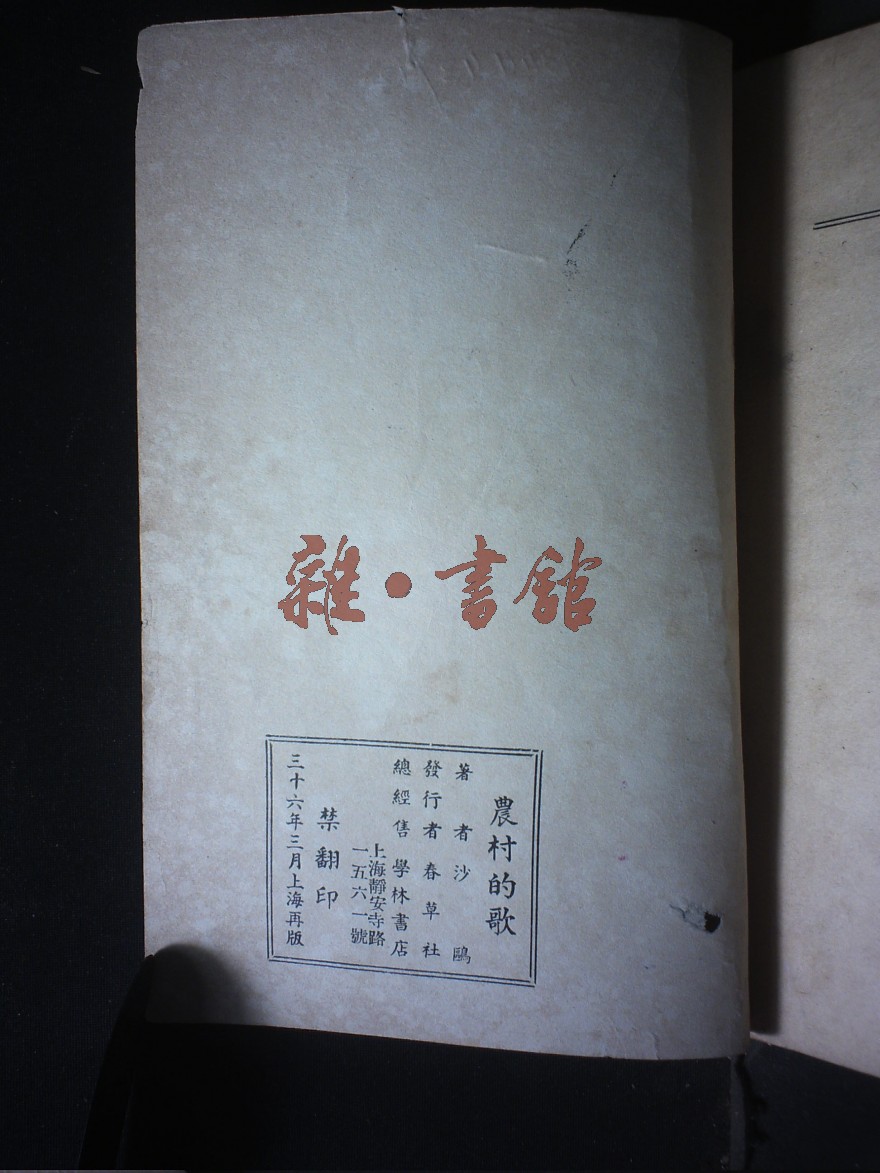 雜・書館
農村的歌
著者沙鷗
發行者春草社
總經售學林書店
上海靜安寺路
一五六一號
禁翻印
三十六年三月上海再版